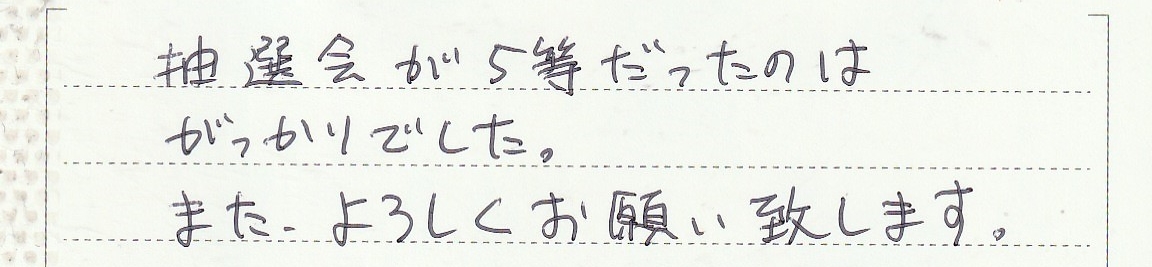 抽選会が5等だったのは
がっかりでした。
また、よろしくお願い致します。